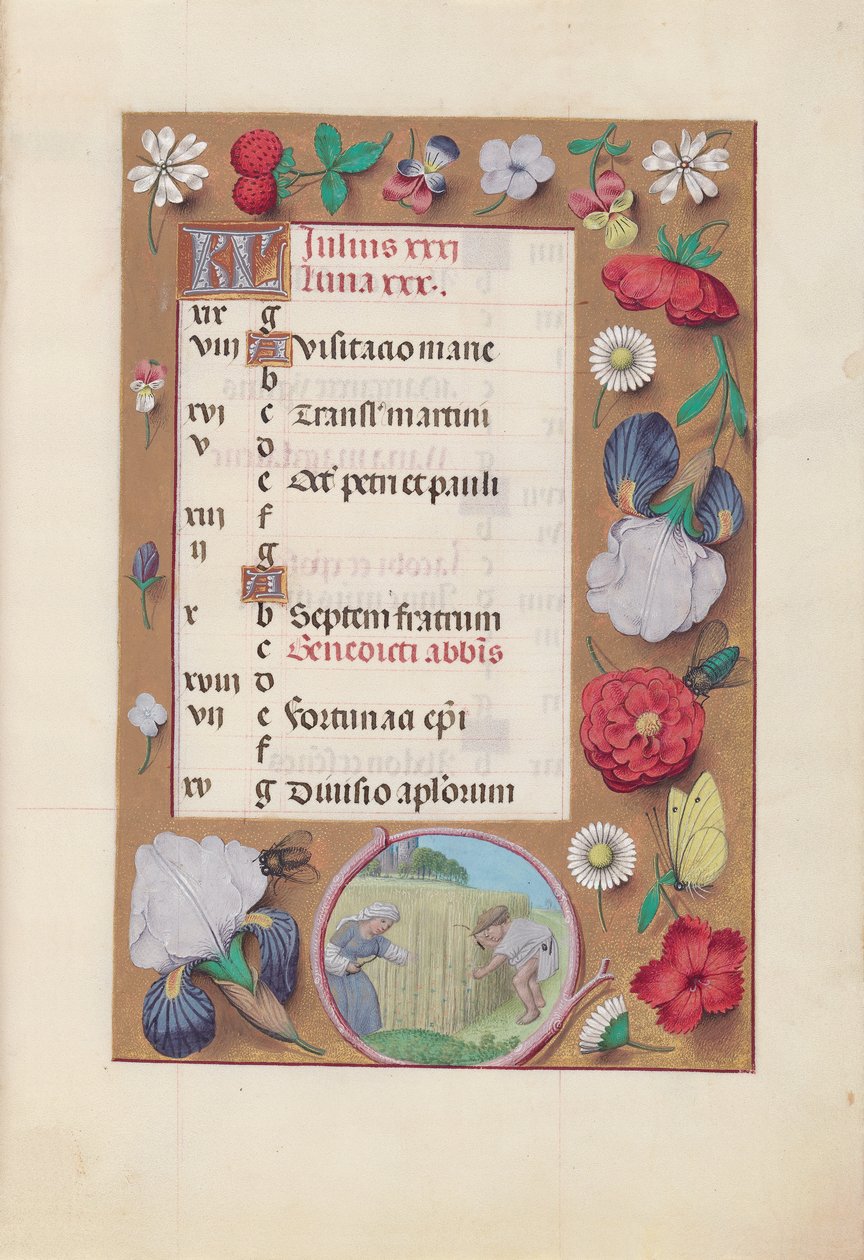 KL Julius xxxj
Luna xxx.
xix g
viii A Visitacio marie
b
xvj c Transl' martini
v d
e Oct' petri et pauli
xiij f
ij g
A
x b Septem fratrum
c Benedicti abbis
xviij d
vij e Fortunati epi
f
xv g Diuisio aplorum